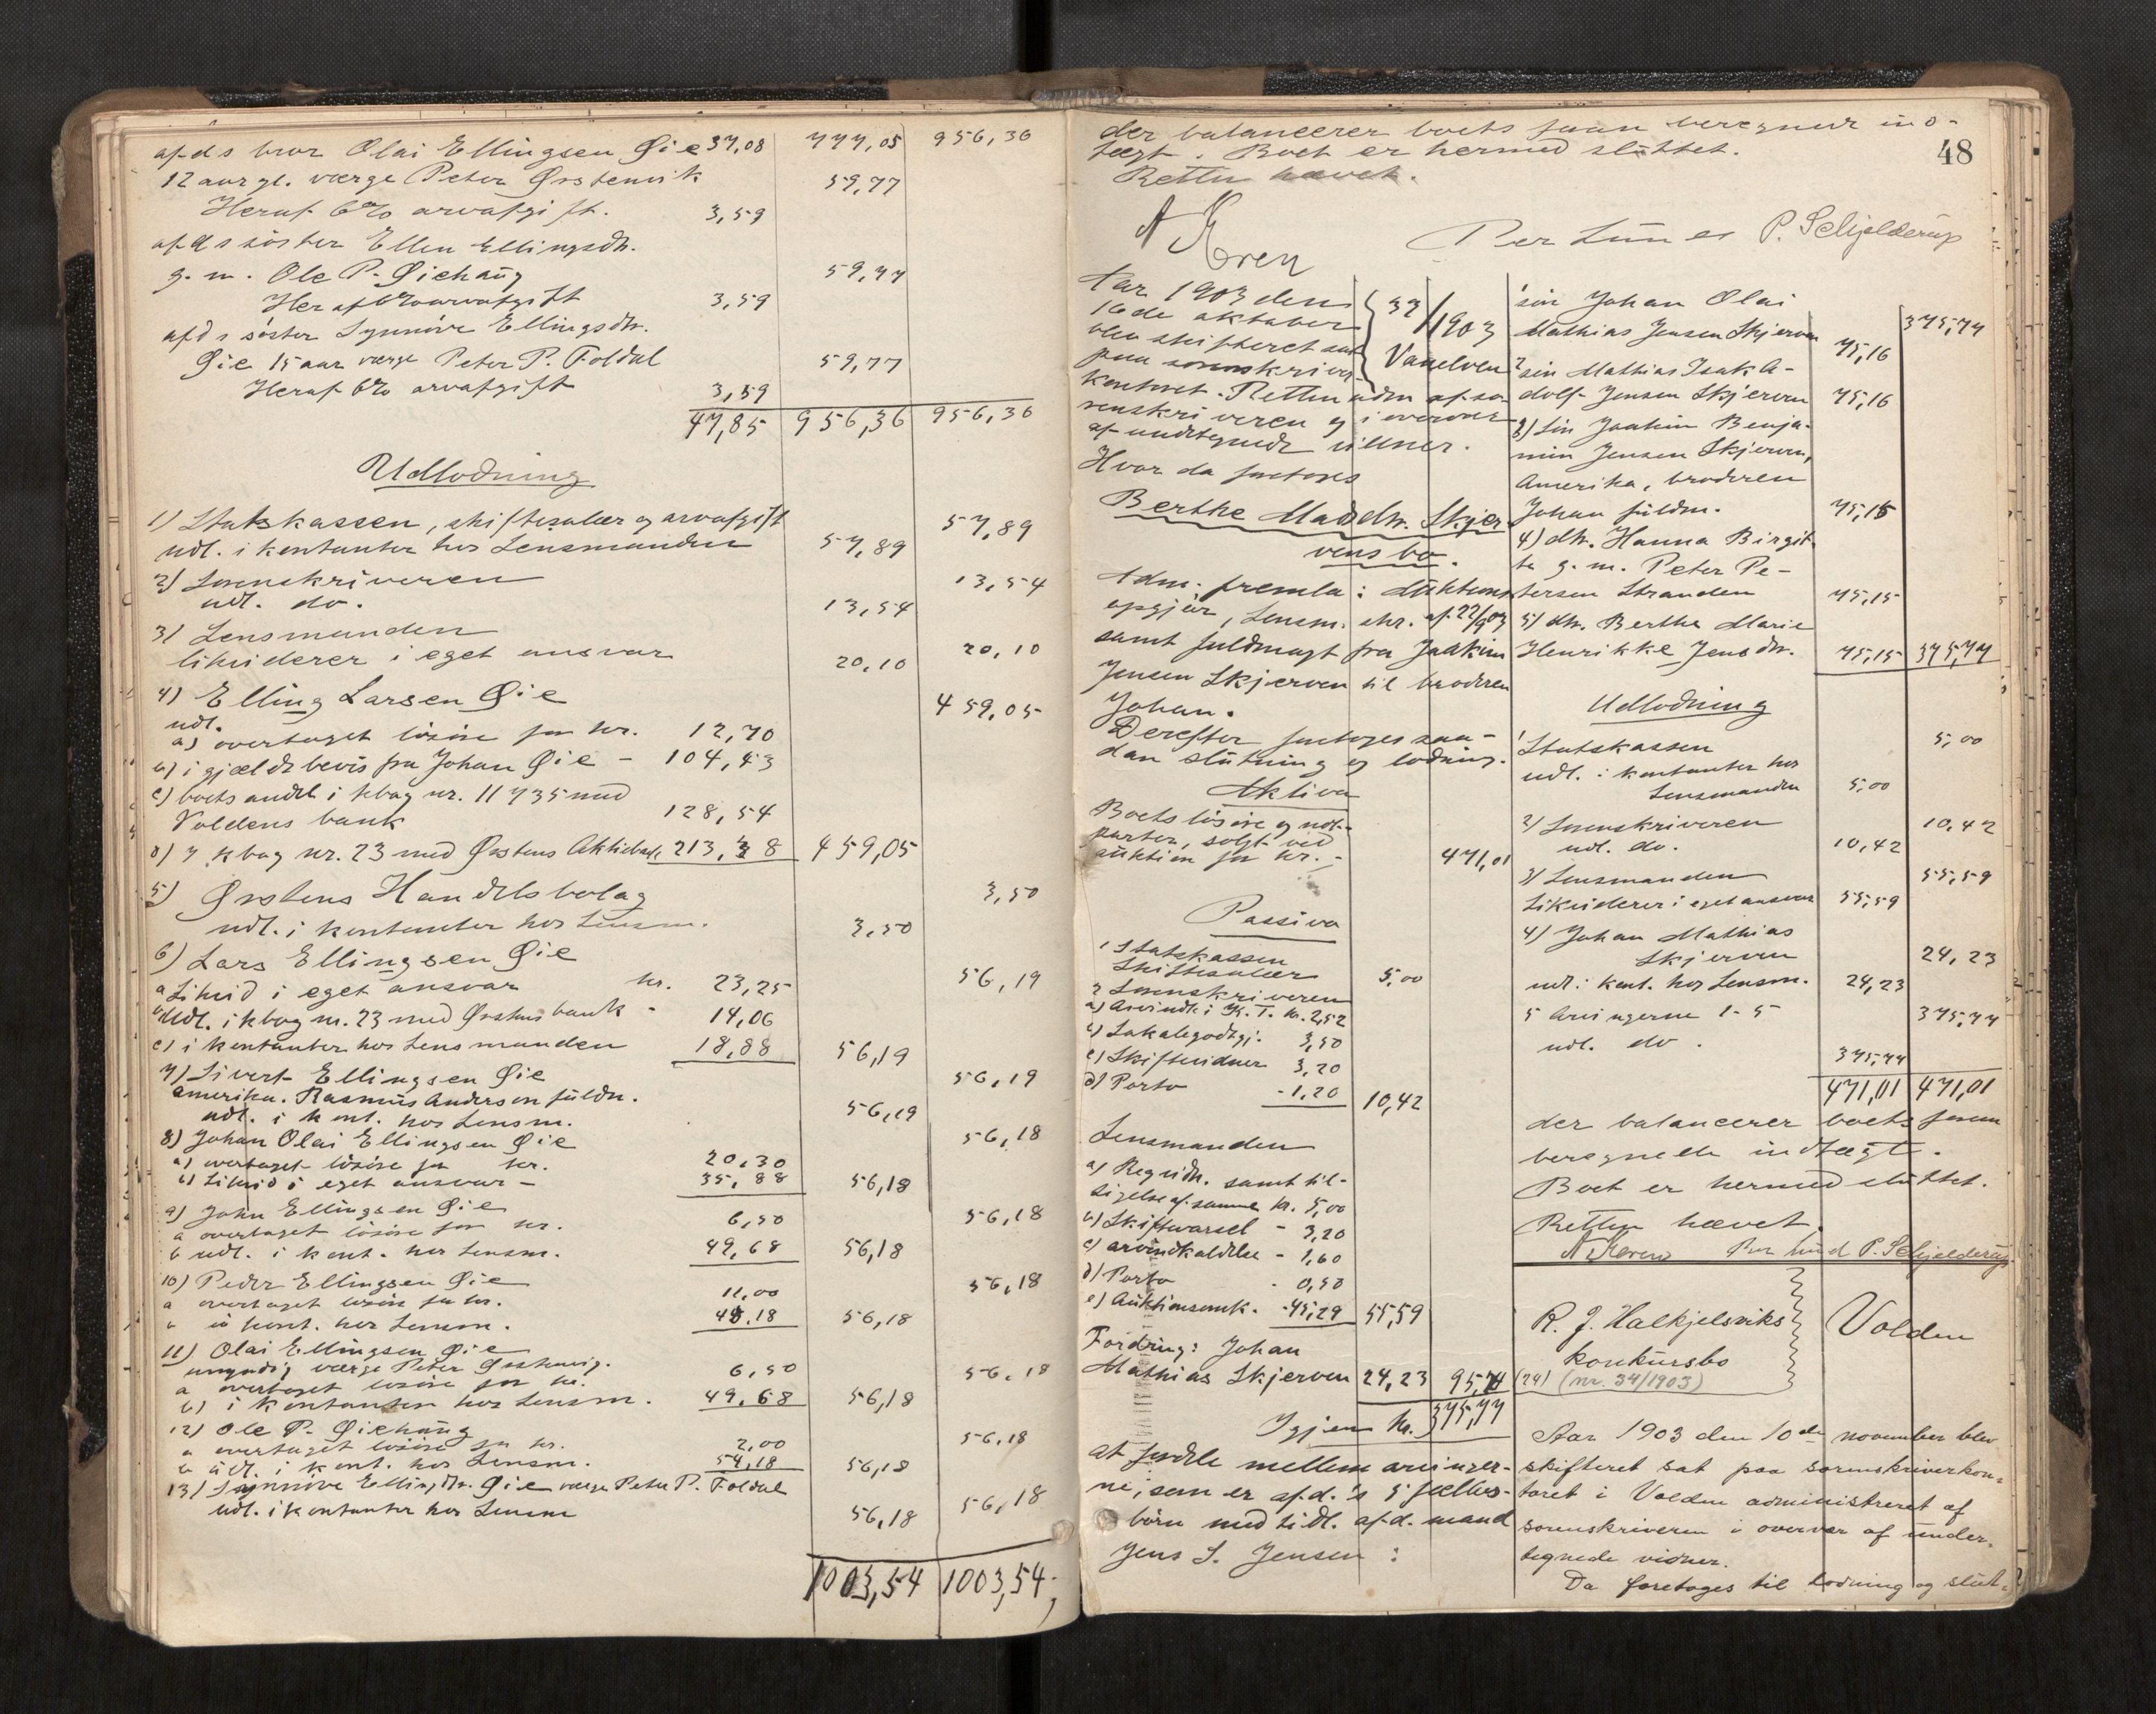 afd s bror Olai Ellingsen Øie 37,08 777,05 956,36
12 aar gl. værge Peter Ørstenvik 59,77
Heraf 6% arvafgift. 3,59
afd s söster Ellen Ellingsdtr.
g. m. Ole P. Øiehaug 59,77
Heraf 6% arvafgift 3,59
afd s söster Synnöve Ellingsdtr.
Øie 15 aar værge Peter P. Foldal 59,77
Heraf 6% arvafgift 3,59
47,85 956,36 956,36
Udlodning
1) Statskassen, skiftesalær og arvafgift 57,89
udl. i kontanter hos Lensmanden 57,89
2) Sorenskriveren 13,54
udl. do. 13,54
3) Lensmanden 20,10
likviderer i eget ansvar 20,10
4) Elling Larsen Øie 459,05
udl.
a) overtaget lösöre for kr. 12,70
b) i gjældsbevis fra Johan Øie - 104,43
c) boets andel i kbog nr. 11735 med
Voldens bank 128,54
d) i kbog nr. 23 med Ørstens Aktiebank 213,38 459,05
5) Ørstens Handelsbolag 3,50
udl. i kontanter hos Lensm. 3,50
6) Lars Ellingsen Øie 56,19
a Likvid i eget ansvar kr. 23,25
b Udl. i kbog nr. 23 med Ørstens bank - 14,06
c) i kontanter hos Lensmanden 18,88 56,19
7) Sivert Ellingsen Øie 56,19
Amerika. Rasmus Andersen fuldm.
udl. i kont. hos Lensm. 56,19
8) Johan Olai Ellingsen Øie 56,18
a) overtaget lösöre for kr. 20,30
b) Likvid i eget ansvar - 35,88 56,18
9) John Ellingsen Øie 56,18
a overtaget lösöre for kr. 6,50
b udl. i kont. hos Lensm. 49,68 56,18
10) Peder Ellingsen Øie 56,18
a overtaget lösöre for kr. 11,00
b i kont. hos Lensm. 45,18 56,18
11) Olai Ellingsen Øie 56,18
umyndig værge Peter Ørstenvig.
a overtaget lösöre for kr. 6,50
b) i kontanter hos Lensm. 49,68 56,18
12) Ole P. Øiehaug 56,18
a overtaget lösöre for kr. 2,00
b udl. i kont. hos Lensm. 54,18 56,18
13) Synnöve Ellingsdtr. Øie værge Peter P. Foldal 56,18
udl. i kontanter hos Lensm 56,18
1003,54 1003,54
48
der balancerer boets som beregnede ind-
tægt. Boet er hermed sluttet.
Retten hævet.
N Kren
Per Lunes P. Schjelderup
Aar 1903 den
16de oktober
blev skifteret sat
paa sorenskriver-
kontoret. Retten adm af so-
renskriveren og i overvær
af undertegnede vidner.
Hvor da foretoges
37/1903
Vanelven
Berthe Madsdtr. Skjer-
vens bo.
Adm. fremla: Auktions-
opgjör, Lensm. skr. af 22/9 03
samt fuldmagt fra Joakim
Jensen Skjerven til broderen
Johan.
Derefter foretoges saa-
dan slutning og lodning.
Aktiva
Boets lösöre og udl.
parter, solgt ved
auktion for kr. - 471,01
Passiva
1 Statskassen
Skiftesalær 5,00
2 Sorenskriveren
a) Arvindk. i K. T. kr. 2,52
b) Lokalegodtgj. 3,50
c) Skiftevidner 3,20
d) Porto - 1,20 10,42
Lensmanden
a) Regridn. samt til-
sigelse af samme kr. 5,00
b) Skiftevarsel - 3,20
c) arvindkaldelse - 1,60
d) Porto - 0,50
e) Auktionsomk. - 45,29 55,59
Fordring: Johan
Mathias Skjerven 24,23 95,24
Igjen kr. 375,77
at fordele mellem arvinger-
ne, som er afd.'s 5 fælles-
börn med tidl. afd. mand
Jens S. Jensen:
1 sön Johan Olai 375,77
Mathias Jensen Skjerven 75,16
2 sön Mathias Isak A-
dolf Jensen Skjerven 75,16
3) Sön Joakim Benja-
min Jensen Skjerven,
Amerika, broderen
Johan fuldm. 75,15
4) dtr. Hanna Birgit-
te g. m. Peter Pe-
tersen Stranden 75,15
5) dtr. Berthe Marie
Henrikke Jensdtr. 75,15 375,77
Udlodning
1 Statskassen 5,00
udl. i kontanter hos
Lensmanden 5,00
2) Sorenskriveren 10,42
udl. do. 10,42
3) Lensmanden 55,59
Likviderer i eget ansvar 55,59
4) Johan Mathias
Skjerven 24,23
udl. i kont. hos Lensm. 24,23
5 Arvingerne 1-5 375,77
udl. do. 375,77
471,01 471,01
der balancerer boets som
beregnede indtægt.
Boet er hermed sluttet.
Retten hævet.
N Kren Per Lund P. Schjelderup
R. J. Halkjelsviks
konkursbo
(24) (nr. 34/1903)
Volden
Aar 1903 den 10de november blev
skifteret sat paa sorenskriverkon-
toret i Volden administreret af
sorenskriveren i overvær af under-
tegnede vidner.
Da foretoges til lodning og slut-